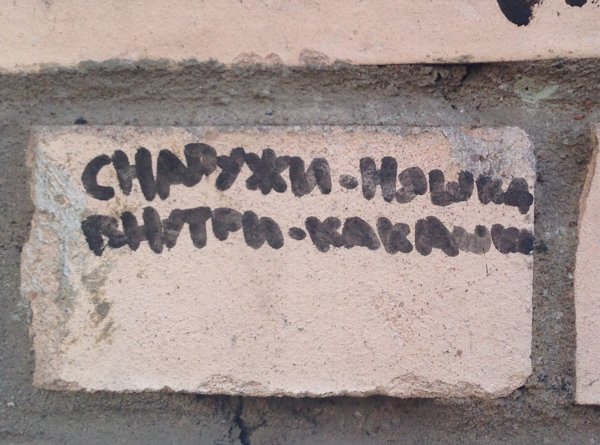 СНАРУЖИ-НЯШКА
ВНУТРИ-КАКАШКА